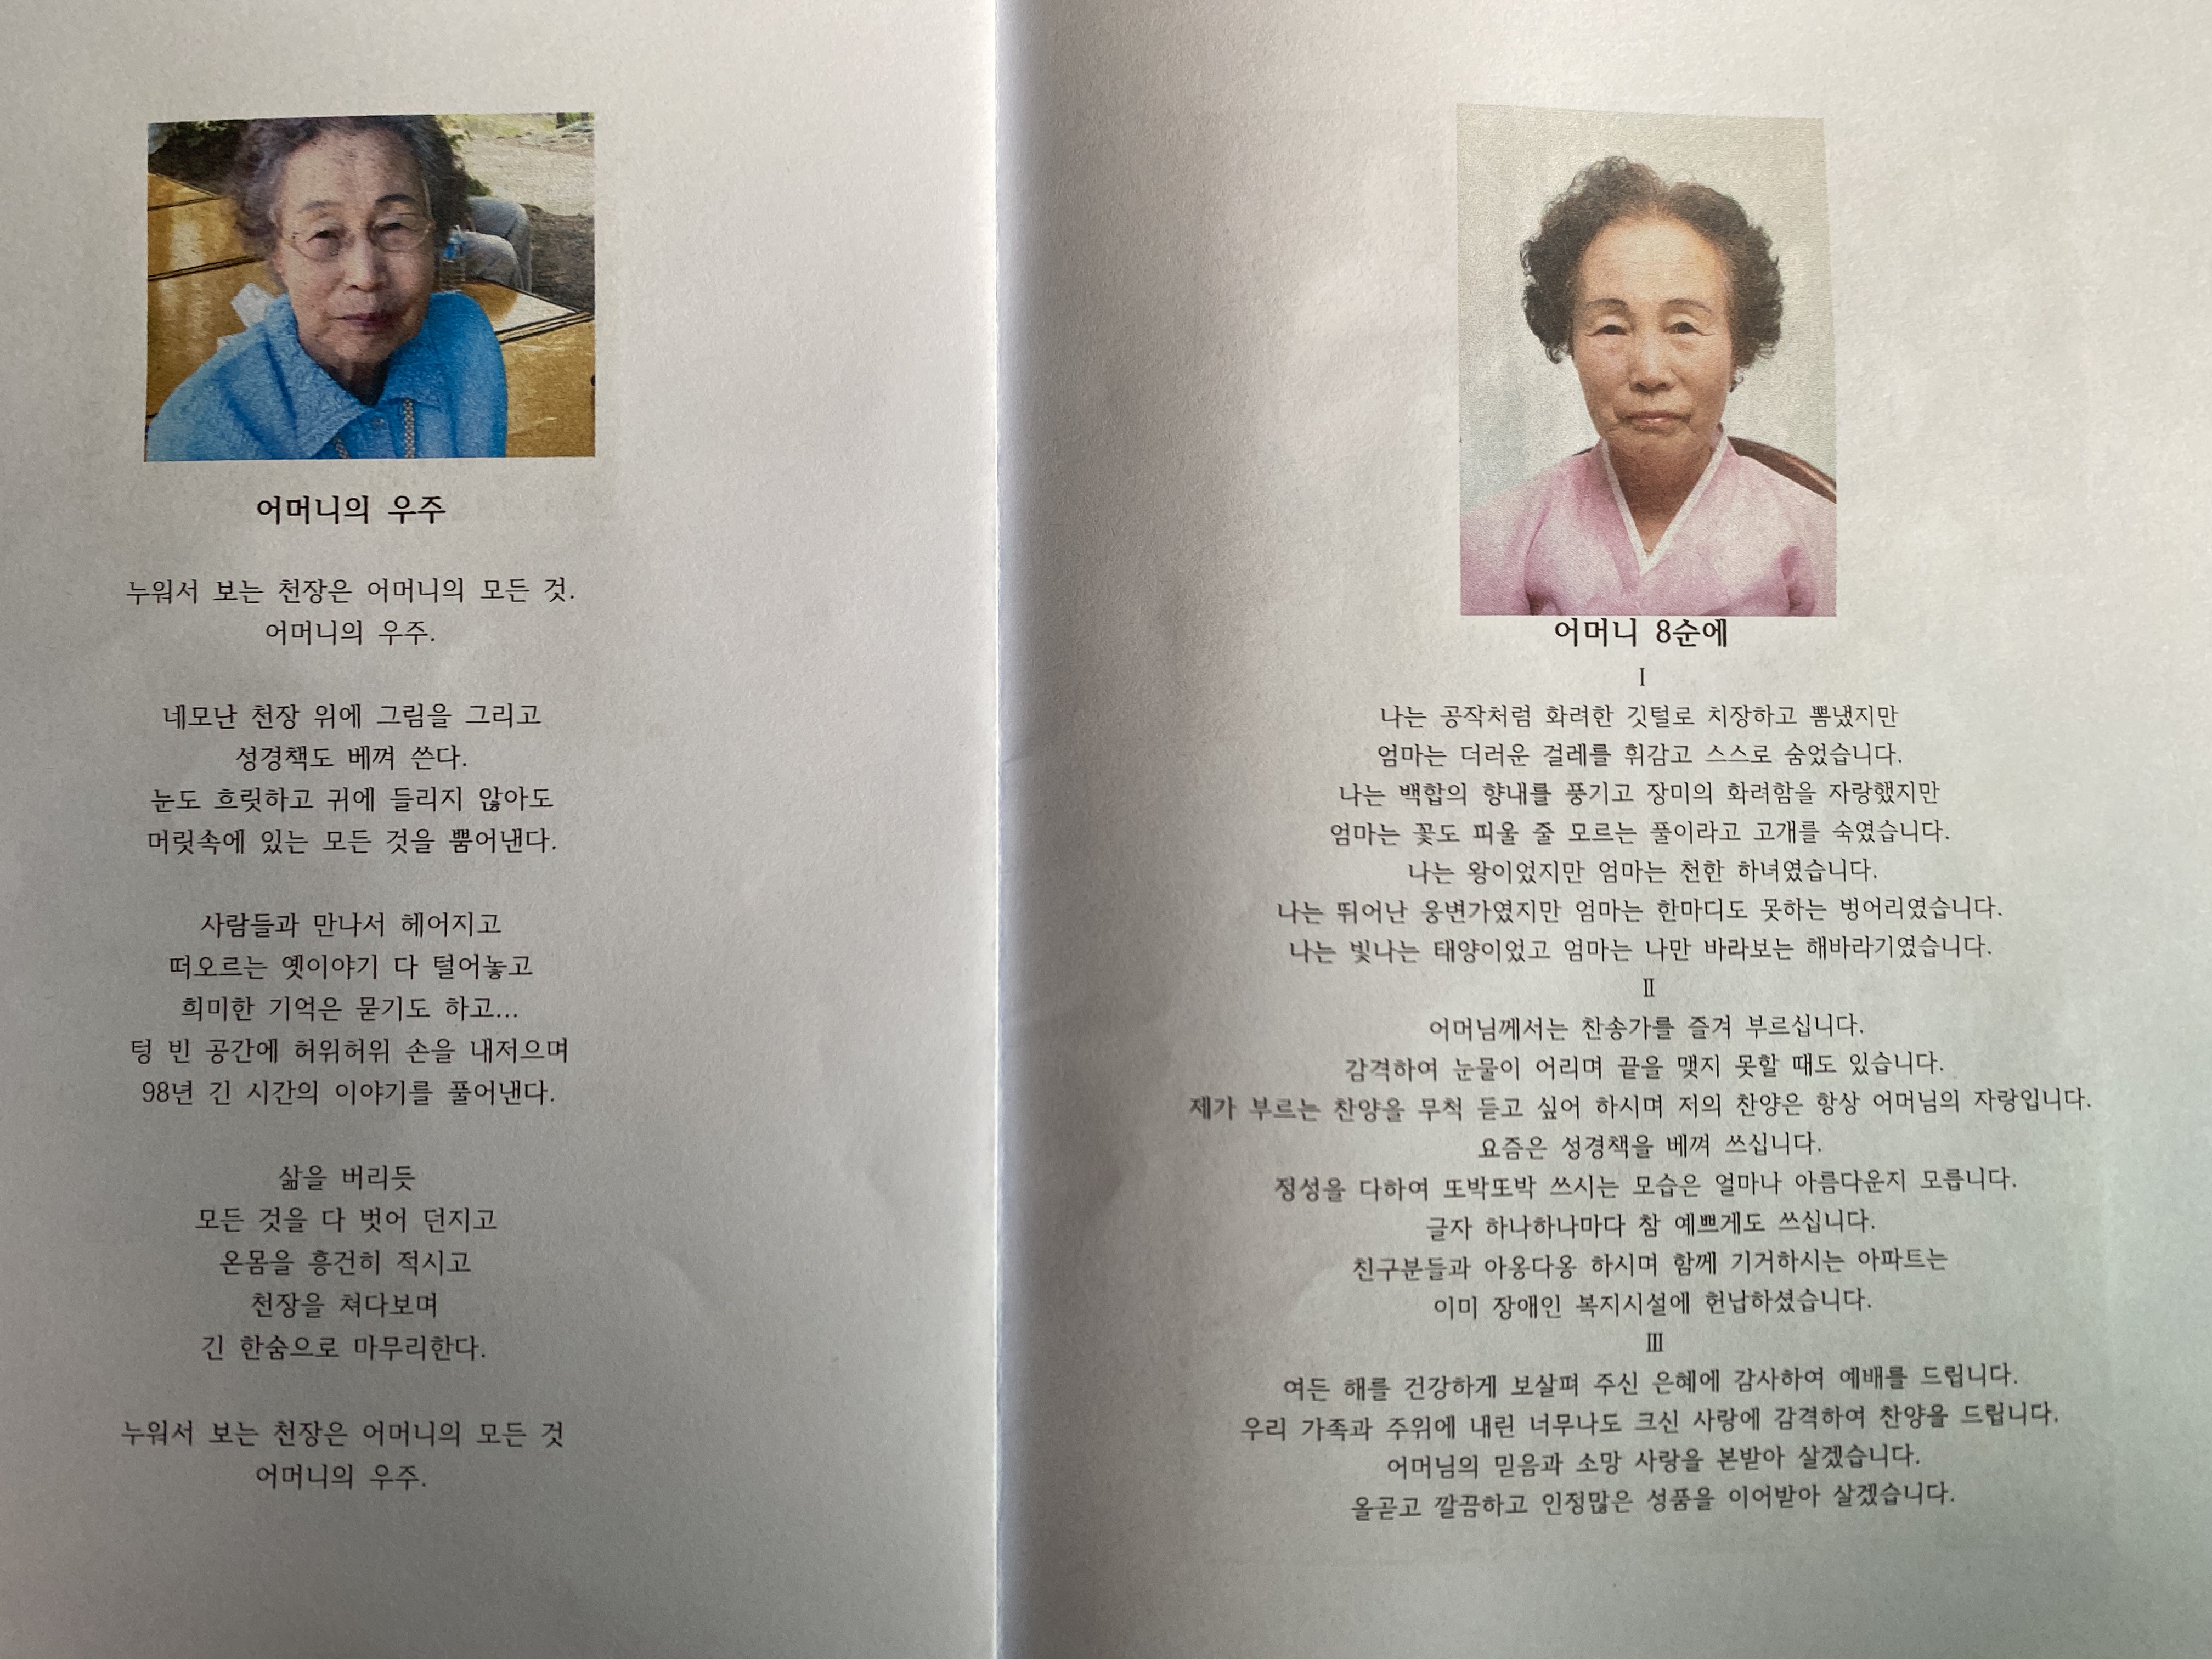 어머니의 우주
누워서 보는 천장은 어머니의 모든 것.
어머니의 우주.
네모난 천장 위에 그림을 그리고
성경책도 베껴 쓴다.
눈도 흐릿하고 귀에 들리지 않아도
머릿속에 있는 모든 것을 뿜어낸다.
사람들과 만나서 헤어지고
떠오르는 옛이야기 다 털어놓고
희미한 기억은 묻기도 하고...
텅 빈 공간에 허위허위 손을 내저으며
98년 긴 시간의 이야기를 풀어낸다.
삶을 버리듯
모든 것을 다 벗어 던지고
온몸을 흥건히 적시고
천장을 쳐다보며
긴 한숨으로 마무리한다.
누워서 보는 천장은 어머니의 모든 것
어머니의 우주.
어머니 8순에
Ⅰ
나는 공작처럼 화려한 깃털로 치장하고 뽐냈지만
엄마는 더러운 걸레를 휘감고 스스로 숨었습니다.
나는 백합의 향내를 풍기고 장미의 화려함을 자랑했지만
엄마는 꽃도 피울 줄 모르는 풀이라고 고개를 숙였습니다.
나는 왕이었지만 엄마는 천한 하녀였습니다.
나는 뛰어난 웅변가였지만 엄마는 한마디도 못하는 벙어리였습니다.
나는 빛나는 태양이었고 엄마는 나만 바라보는 해바라기였습니다.
Ⅱ
어머님께서는 찬송가를 즐겨 부르십니다.
감격하여 눈물이 어리며 끝을 맺지 못할 때도 있습니다.
제가 부르는 찬양을 무척 듣고 싶어 하시며 저의 찬양은 항상 어머님의 자랑입니다.
요즘은 성경책을 베껴 쓰십니다.
정성을 다하여 또박또박 쓰시는 모습은 얼마나 아름다운지 모릅니다.
글자 하나하나마다 참 예쁘게도 쓰십니다.
친구분들과 아옹다옹 하시며 함께 기거하시는 아파트는
이미 장애인 복지시설에 헌납하셨습니다.
Ⅲ
여든 해를 건강하게 보살펴 주신 은혜에 감사하여 예배를 드립니다.
우리 가족과 주위에 내린 너무나도 크신 사랑에 감격하여 찬양을 드립니다.
어머님의 믿음과 소망 사랑을 본받아 살겠습니다.
올곧고 깔끔하고 인정많은 성품을 이어받아 살겠습니다.